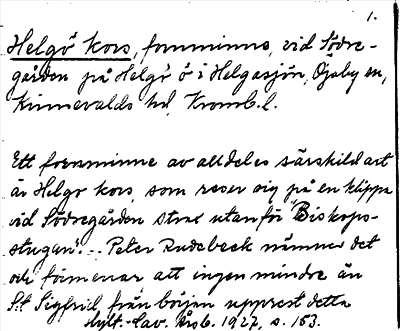 1.
Helgö kors, fornminne, vid Södre-
gården på Helgö ö i Helgasjön, Öjaby sn,
Kinnevalds hd, Kronob. l.
Ett fornminne av alldeles särskild art
är Helgö kors, som reser sig på en klippa
vid Södregården strax utanför "Biskops-
stugan". - Peter Rudebeck nämner det
och förmenar att ingen mindre än
S:t Sigfrid från början upprest detta
Hylt.-Cav. Årsb. 1927, s. 153.